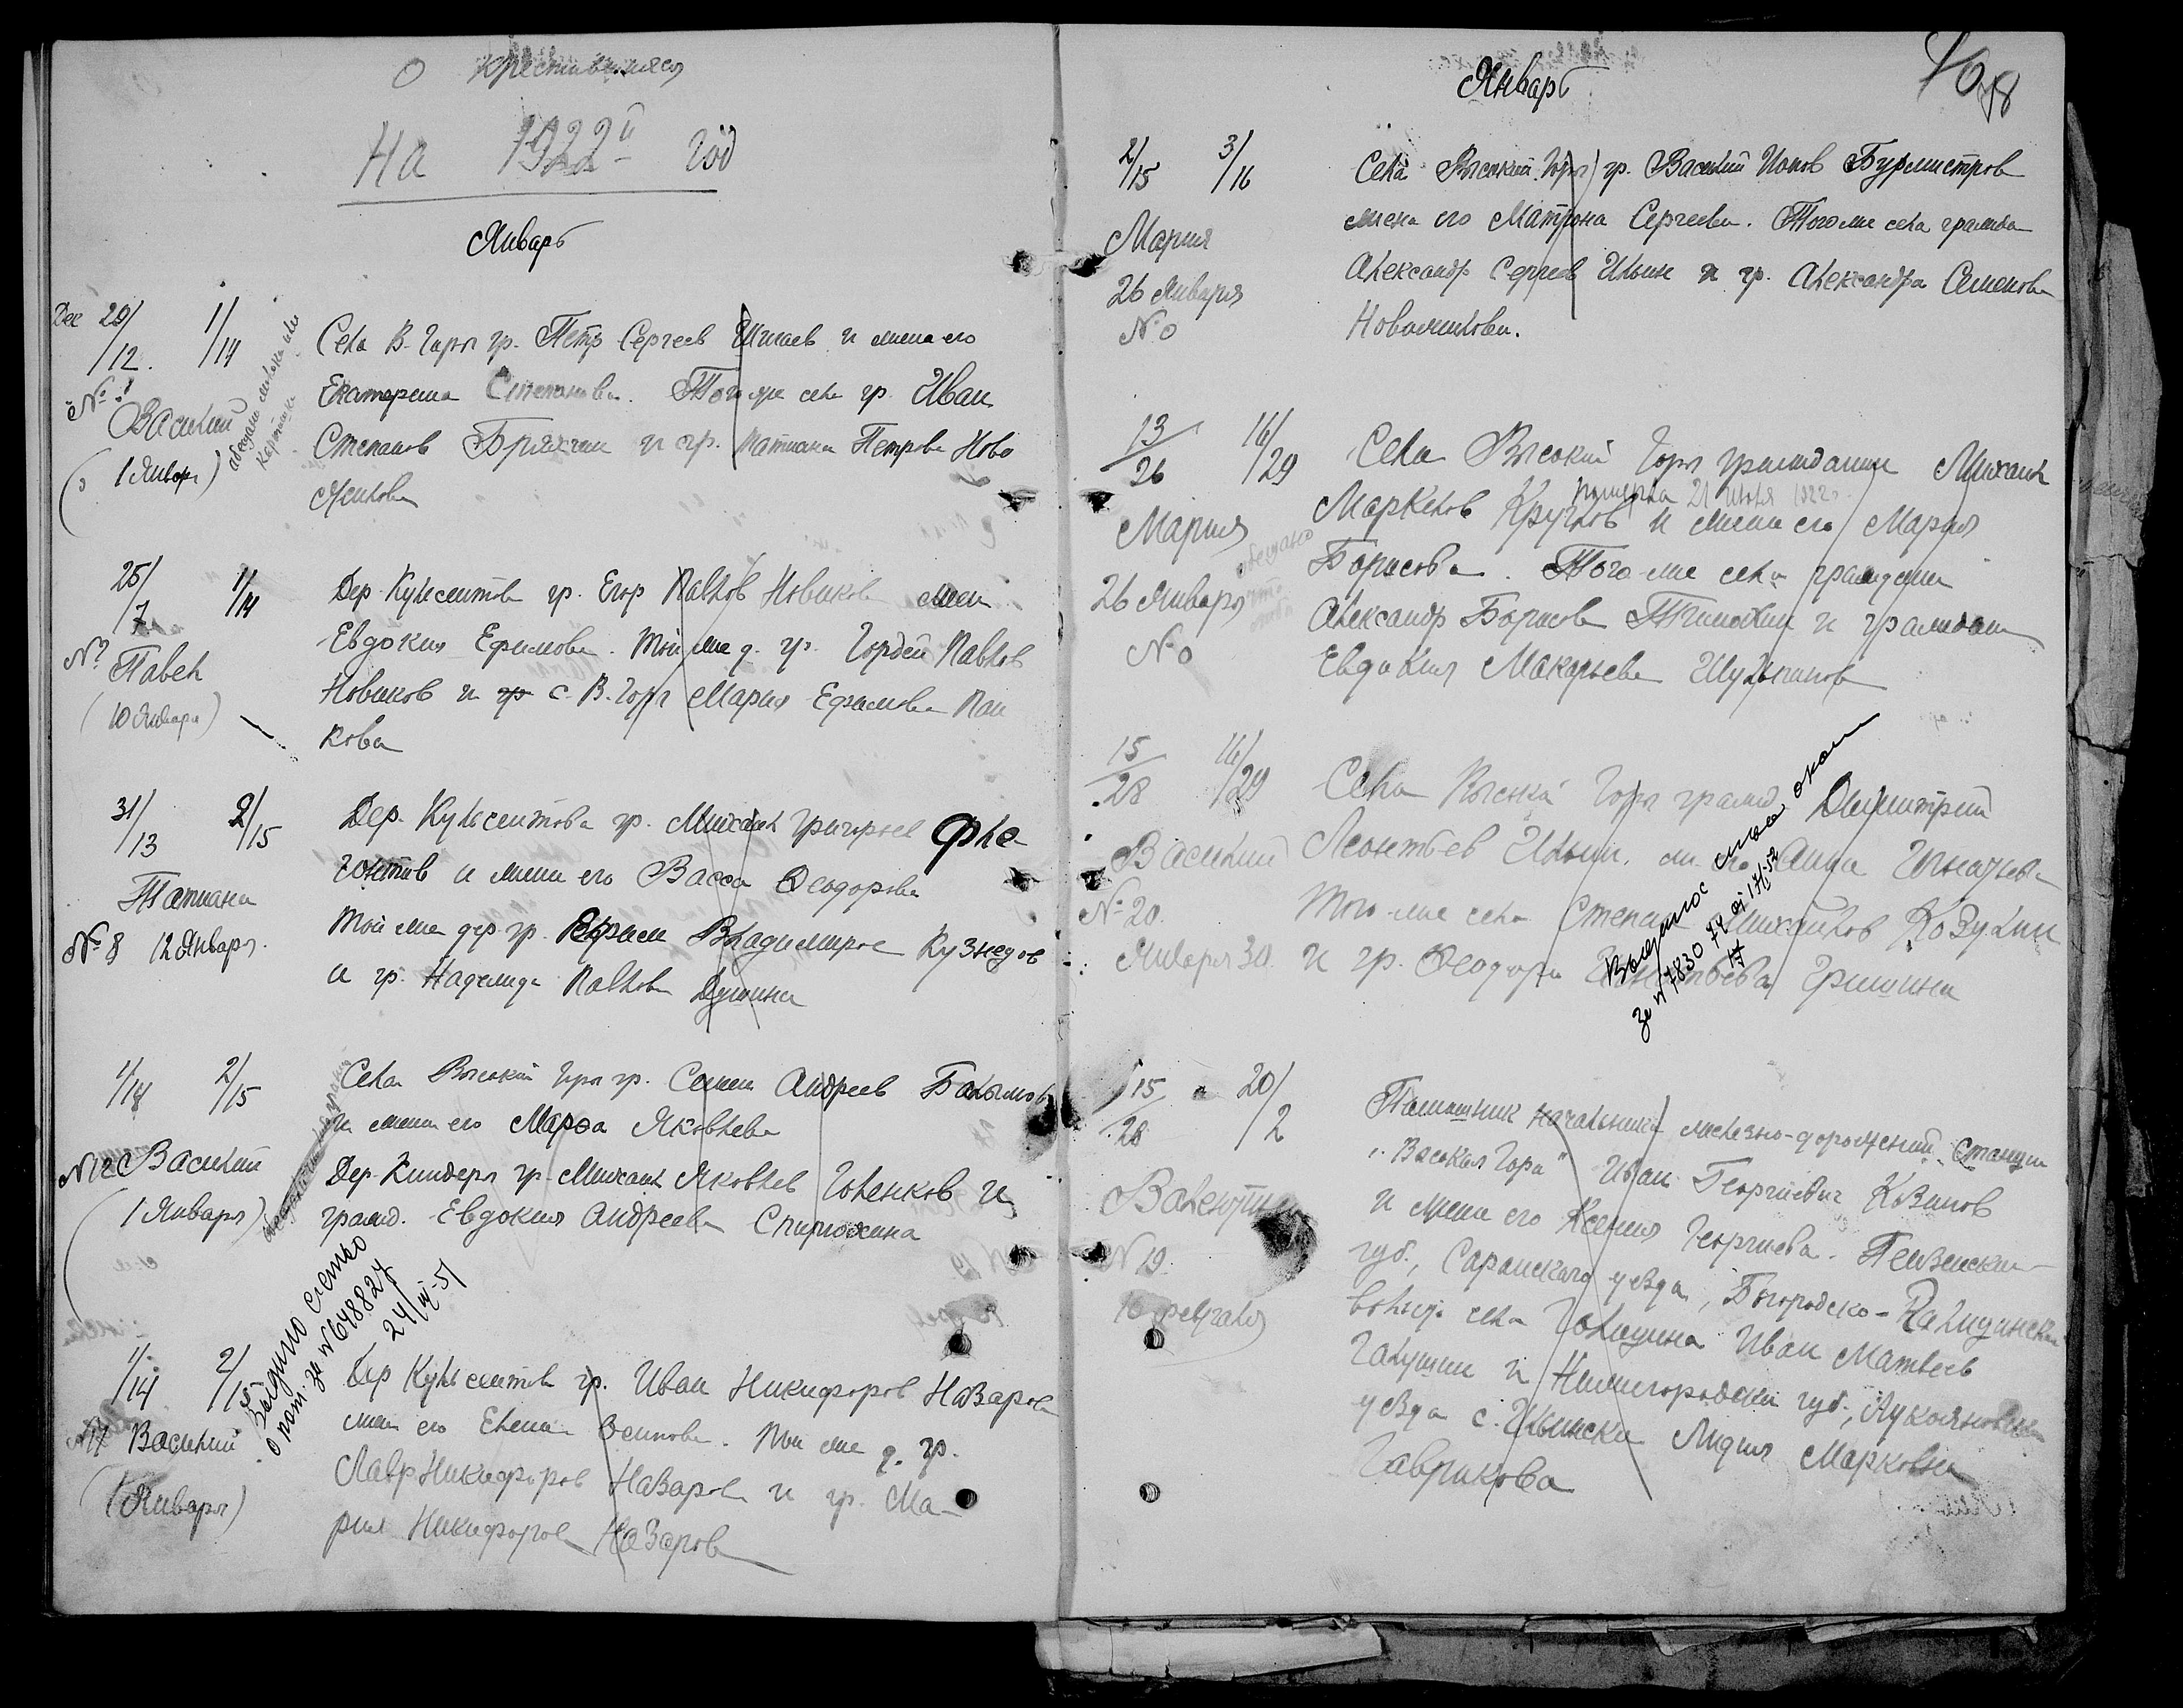 О крестившихся
На 1922й год
Январь
Дек 29/12. 1/14
№
Василий
(1 Январ)
Села В. Горы гр. Петр Сергеев и жена его
Екатерина Степанова. Того же села гр. Иван
Степанов и гр. Татиана Петрова Ново
жилова
25/7 1/14
№?
Павел
(10 Января)
Дер. Кульсеитова гр. Егор Павлов Новиков жен
Евдокия Ефимова. Той же д. гр. Гордей Павлов
Новиков и гр с. В. Горы Мария Ефимова Пан
кова
31/13 2/15
Татиана
№ 8 12 Января.
Дер. Кульсеитова гр. Михаил Григорьев Фле
гонтов и жена его Васса Феодорова
Той же дер. гр. Ефрем Владимиров Кузнецов
и гр. Надежда Павлова Душина
1/14 2/15
Василий
(1 Января)
Села Высокой Горы гр. Семен Андреев Балымов
и жена его Марфа Яковлева
Дер. Киндери гр. Михаил Яковлев Голенков и
гражд. Евдокия Андреева Спирюхина
Выдано свид-во
за № 648827
24/III-51
1/14 2/15
Василий
(1 Января)
Дер Кульсеитова гр. Иван Никифоров Назаров
жена его Елена Осипова. Той же д. гр.
Лавр Никифоров Назаров и гр. Ма-
рия Никифорова Назарова
Январь
2/15 3/16
Мария
26 Января
№ 0
Села Высокой Горы гр. Василий Ионов Бурмистров
жена его Матрона Сергеева. Того же села граждан
Александр Сергеев Ильин и гр. Александра Семенова
Новожилова.
13/26 16/29
Мария
26 Января
№ 0
Села Высокой Горы гражданин Михаил
померла 21 июля 1922 г.
Маркелов Круглов и жена его Мария
Борисова. Того же села гражданин
Александр Борисов Тимохин и гражданка
Евдокия Макарьева Шульпинова
15/28 16/29
Василий
№ 20.
Января 30.
Села Высокой Горы гражд. Димитрий
Леонтьев Ильин, ж. его Анна Игнатьева
Того же села Степан Михайлов Козулин
и гр. Феодора Игнатьева Гришина
за № 7830
15/28 20/2
Валентин
№ 19
16 февраля
Помощник начальника железно-дорожной станции
"Высокая Гора" Иван Георгиевич Козинов
и жена его Ксения Георгиева. Пензенской
губ., Саранского уезда, Богородско-Голицинской
волости села Голицина Иван Матвеев
Галушин и Нижегородской губ., Лукояновского
уезда с. Ильинска Лидия Марковна
Гаврикова